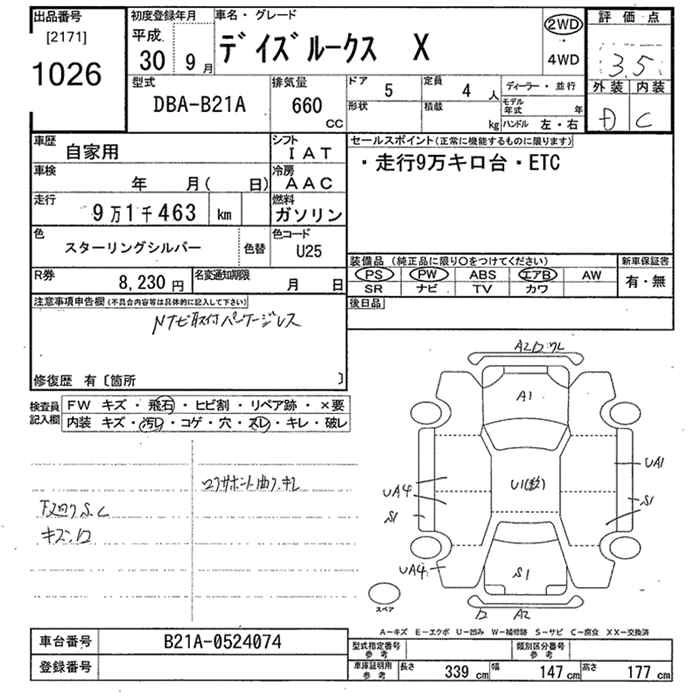 出品番号
[2171]
1026
初度登録年月
平成
30 9月
車名・グレード
デイズルークス X
2WD
4WD
評価点
3.5
外装 内装
D C
型式
DBA-B21A
排気量
660 CC
ドア 5
形状
定員 4 人
積載 kg
ディーラー・並行
モデル年式 年
ハンドル 左・右
車歴
自家用
シフト
IAT
車検 年 月( 日)
冷房
AAC
走行
9万1千463 km
燃料
ガソリン
色
スターリングシルバー
色替
色コード
U25
R券
8,230円
名変通知期限 月 日
セールスポイント(正常に機能するものに限ります)
・走行9万キロ台・ETC
装備品(純正品に限り○をつけてください)
PS PW ABS エアB AW
SR ナビ TV カワ
新車保証書
有・無
後日品
注意事項申告欄(不具合内容等は具体的に記入して下さい)
修復歴 有〔箇所 〕
検査員記入欄
FW キズ・飛石・ヒビ割・リペア跡・×要
内装 キズ・汚レ・コゲ・穴・スレ・キレ・破レ
キズ
A1
U1
UA1
UA4
S1
S1
UA4
S1
A2
スペア
A−キズ E−エクボ U−凹み W−補修跡 S−サビ C−腐食 XX−交換済
車台番号
B21A-0524074
登録番号
型式指定番号 参考
類別区分番号 参考
車庫証明用 参考
長さ 339 cm 幅 147 cm 高さ 177 cm